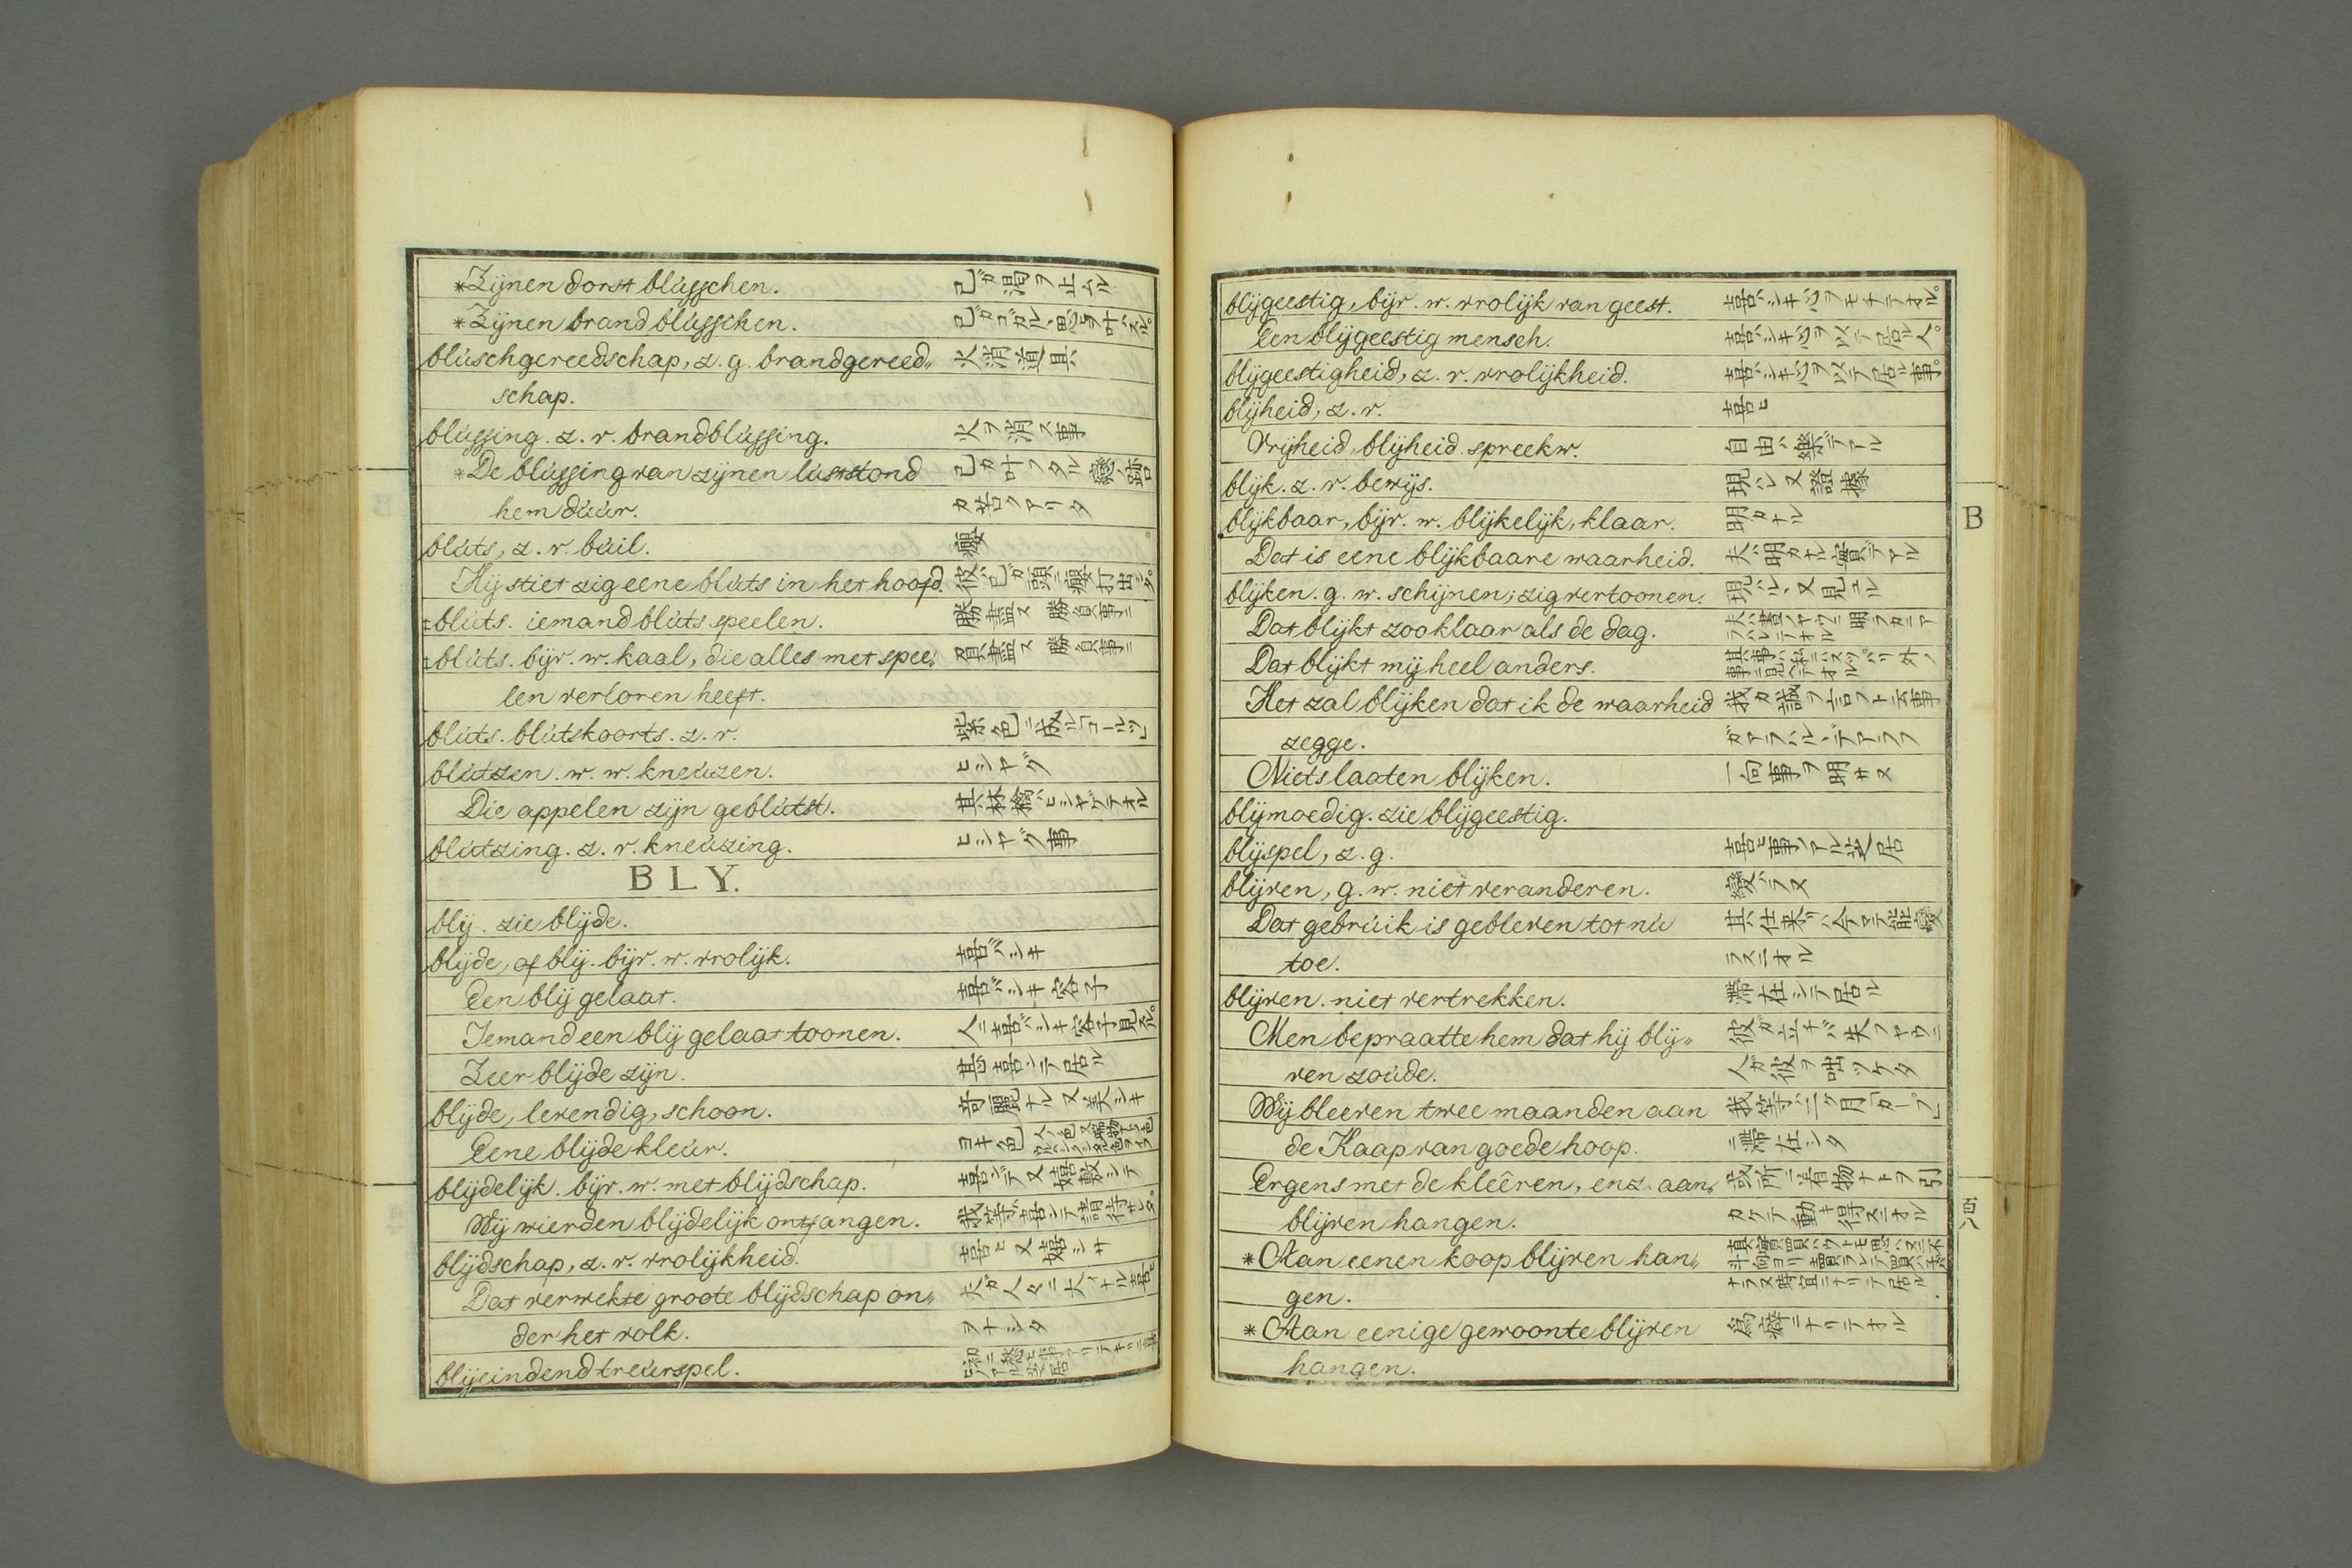 *Zijnen dorst blússchen. 己ガ渇ヲ止ムル
*Zijnen brand blússchen.
blúschgereedschap, z. g. brandgereed„ 火消道具
schap.
blússing. z. v. brandblússing. 火ヲ消ス事
*De blússing van zijnen lust stond
hem dúúr. カ苦クアリタ
blúts, z. v. búil. 癭
Hij stiet zig eene blúts in het hoofd. 彼ハ己ガ頭ニ癭打出シタ。
‡blúts. iemand blúts speelen. 勝盡ス 勝負事ニ
‡blúts. bijv. w. kaal, die alles met spee„ 負盡ス 勝負事ニ
len verloren heeft.
blúts. blútskoorts. z. v. 紫色ニ成ル「コールツ」
blútzen. w. w. kneúzen. ヒシヤグ
Die appelen zijn geblútst. 其林檎ハヒシヤゲテオル
blútzing. z. v. kneúzing. ヒシヤグ事
BLY.
blij. zie blijde.
blijde, of blij. bijv. w. vrolijk. 喜バシキ
Een blij gelaat. 喜バシキ容子
Iemand een blij gelaat toonen. 人ニ喜バシキ容子見スル。
Zeer blijde zijn. 甚喜ンテ居ル
blijde, levendig, schoon. 奇麗ナル又美シキ
Eene blijde kleúr. ヨキ色
blijdelijk. bijv. w. met blijdschap.
Wij wierden blijdelijk ontfangen.
blijdschap, z. v. vrolijkheid. 喜ヒ又嬉シサ
Dat verwekte groote blijdschap on„ 夫ガ人々ニ大イナル喜ヒ
der het volk. ヲナシタ
blijeindend treúrspel.
blijgeestig, bijv. w. vrolijk van geest. 喜バシキ心ヲモチテオル。
Een blijgeestig mensch. 喜バシキ心ヲ以テ居ル人。
blijgeestigheid, z. v. vrolijkheid. 喜バシキ心ヲ以テ居ル事。
blijheid, z. v. 喜ヒ
Vrijheid, blijheid. spreekw. 自由ハ樂デアル
blijk. z. v. bewijs. 現ハレ又證據
blijkbaar, bijv. w. blijkelijk, klaar. 明カナル
Dat is eene blijkbaare waarheid. 夫ハ明カナル實デアル
blijken. g. w. schijnen, zig vertoonen. 現ハル、又見ユル
Dat blijkt zoo klaar als de dag.
Dat blijkt mij heel anders.
Het zal blijken dat ik de waarheid 我カ誠ヲ言フト云事
zegge. ガアラハルヽデアラフ
Niets laaten blijken. 一向事ヲ明サヌ
blijmoedig. zie blijgeestig.
blijspel, z. g. 喜ヒ事ノアル芝居
blijven, g. w. niet veranderen. 變ハラヌ
Dat gebrúik is gebleven tot nú
toe. ラズニオル
blijven. niet vertrekken. 滞在シテ居ル
Men bepraatte hem dat hij blij„
ven zoúde.
Wij bleeven twee maanden aan 我等ハ二ケ月「カープ」
de Kaap van goede hoop. ニ滞在シタ
Ergens met de kleêren, enz. aan„ 或所ニ着物ナトヲ引
blijven hangen. カケテ動キ得ズニオル
*Aan eenen koop blijven han„
gen.
*Aan eenige gewoonte blijven 爲癖ニナリテオル
hangen.
B
百八